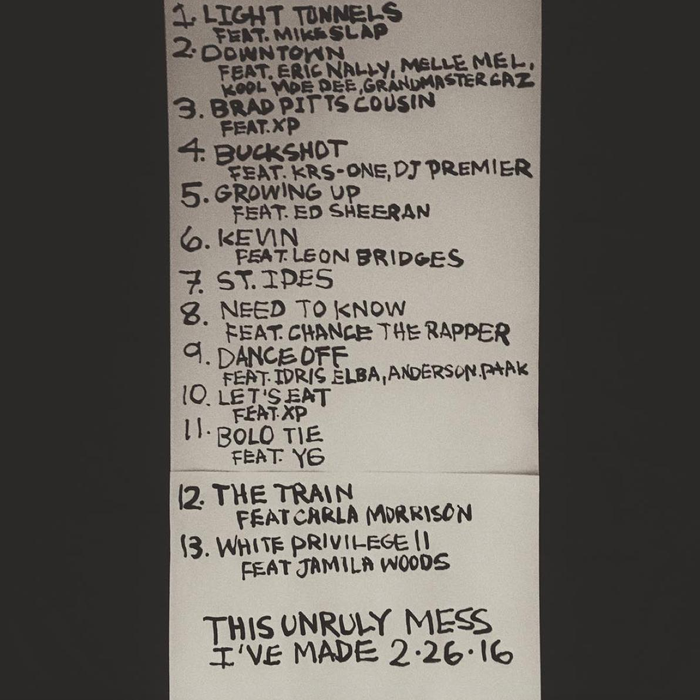 1. LIGHT TUNNELS
FEAT. MIKE SLAP
2. DOWNTOWN
FEAT. ERIC NALLY, MELLE MEL,
KOOL MOE DEE, GRANDMASTER CAZ
3. BRAD PITTS COUSIN
FEAT. XP
4. BUCKSHOT
FEAT. KRS-ONE, DJ PREMIER
5. GROWING UP
FEAT. ED SHEERAN
6. KEVIN
FEAT. LEON BRIDGES
7. ST. IDES
8. NEED TO KNOW
FEAT. CHANCE THE RAPPER
9. DANCE OFF
FEAT. IDRIS ELBA, ANDERSON .PAAK
10. LET'S EAT
FEAT XP
11. BOLO TIE
FEAT. YG
12. THE TRAIN
FEAT CARLA MORRISON
13. WHITE PRIVILEGE II
FEAT JAMILA WOODS
THIS UNRULY MESS
I'VE MADE 2.26.16